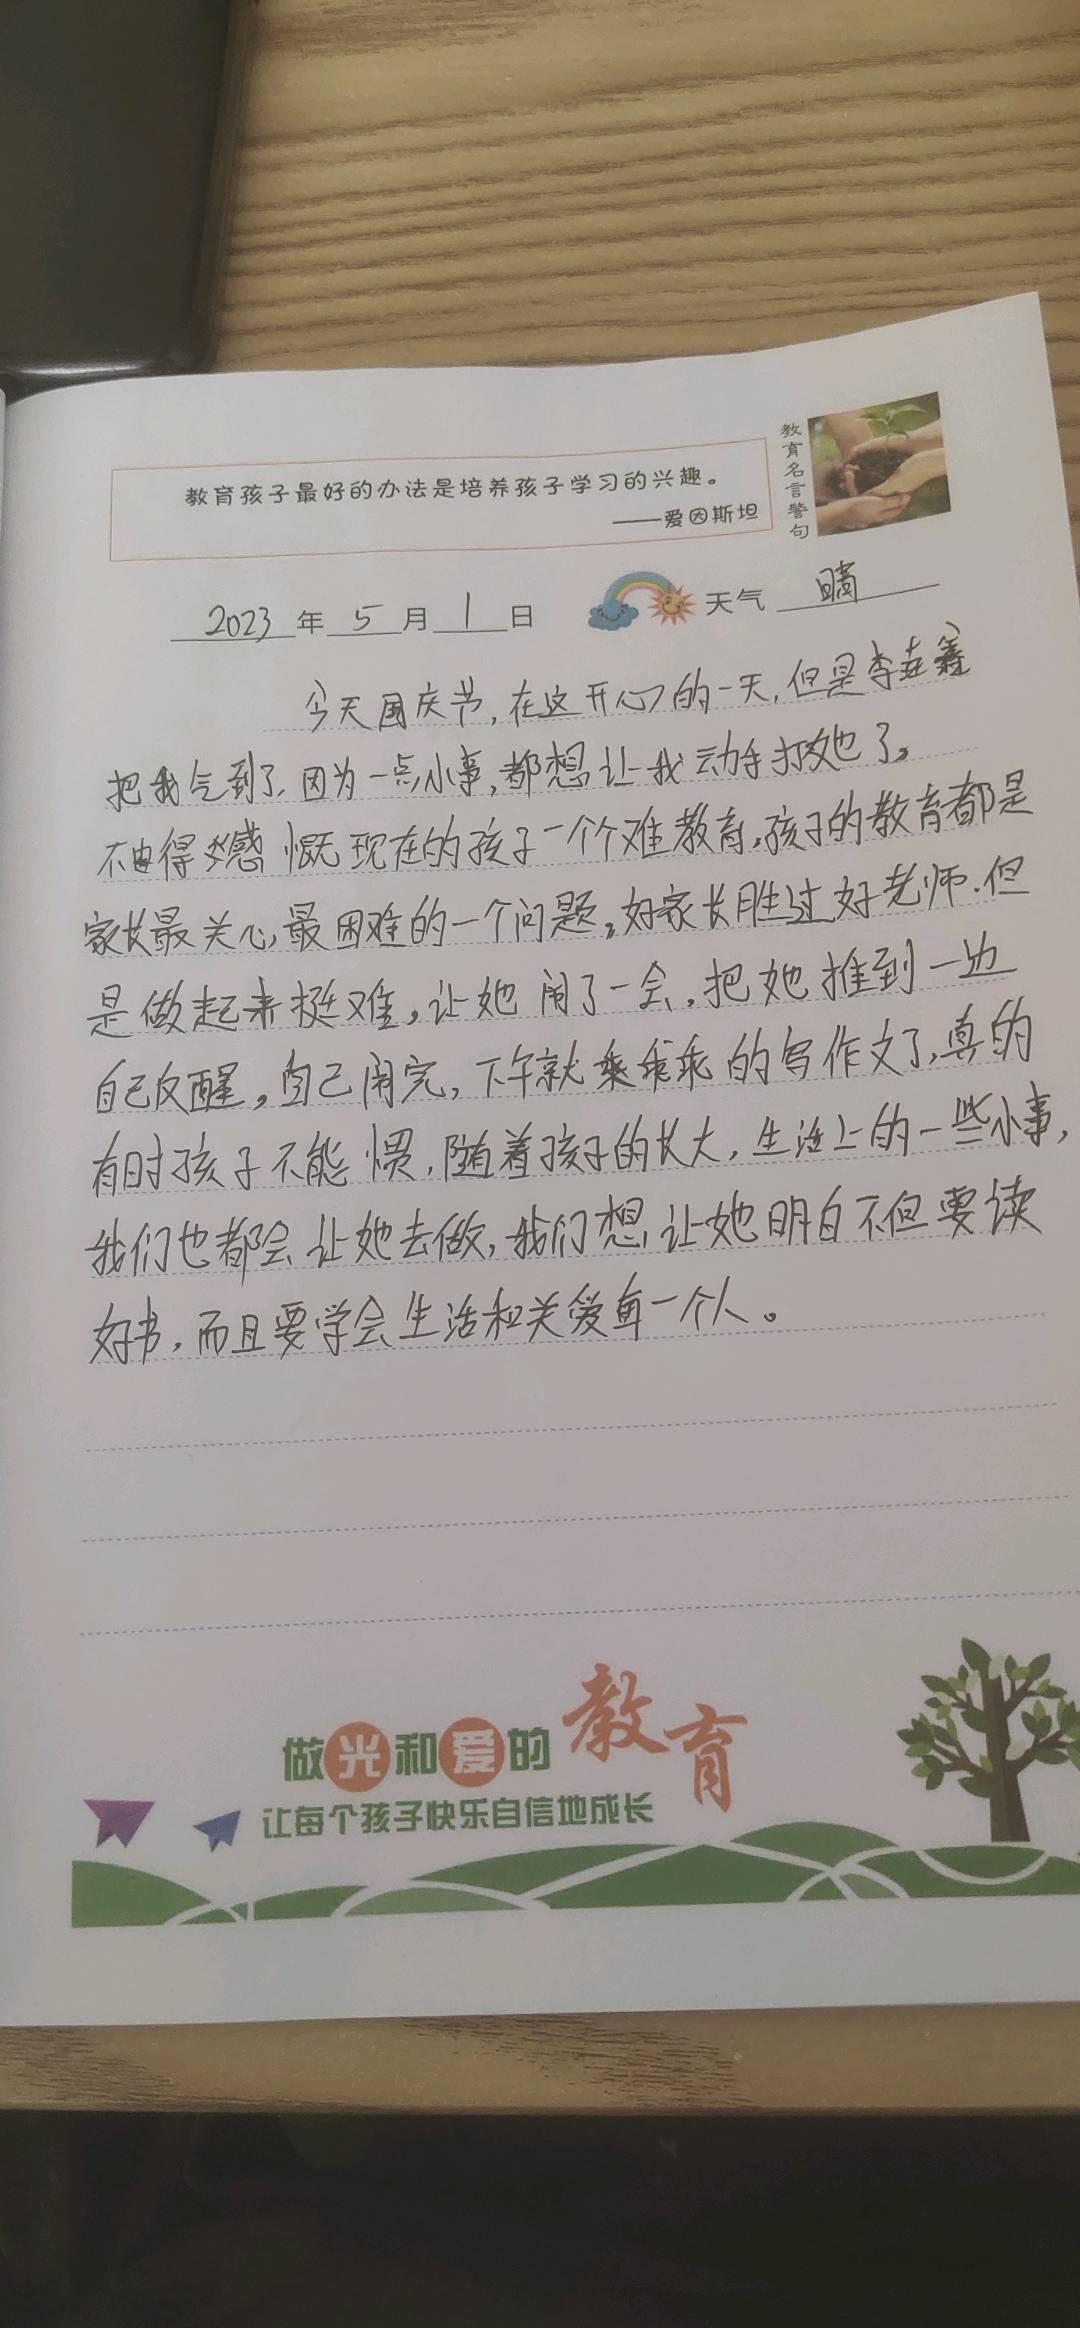 教育孩子最好的办法是培养孩子学习的兴趣。
——爱因斯坦
教育名言警句
2023年5月1日 天气 晴
今天国庆节,在这开心的一天,但是李垚鑫
把我气到了,因为一点小事,都想让我动手打她了。
不由得感慨现在的孩子一个个难教育,孩子的教育都是
家长最关心,最困难的一个问题,好家长胜过好老师.但
是做起来挺难,让她闹了一会,把她推到一边
自己反醒,自己闹完,下午就乘乖乖的写作文了,真的
有时孩子不能惯,随着孩子的长大,生活上的一些小事,
我们也都会让她去做,我们想让她明白不但要读
好书,而且要学会生活和关爱每一个人。
做光和爱的教育
让每个孩子快乐自信地成长